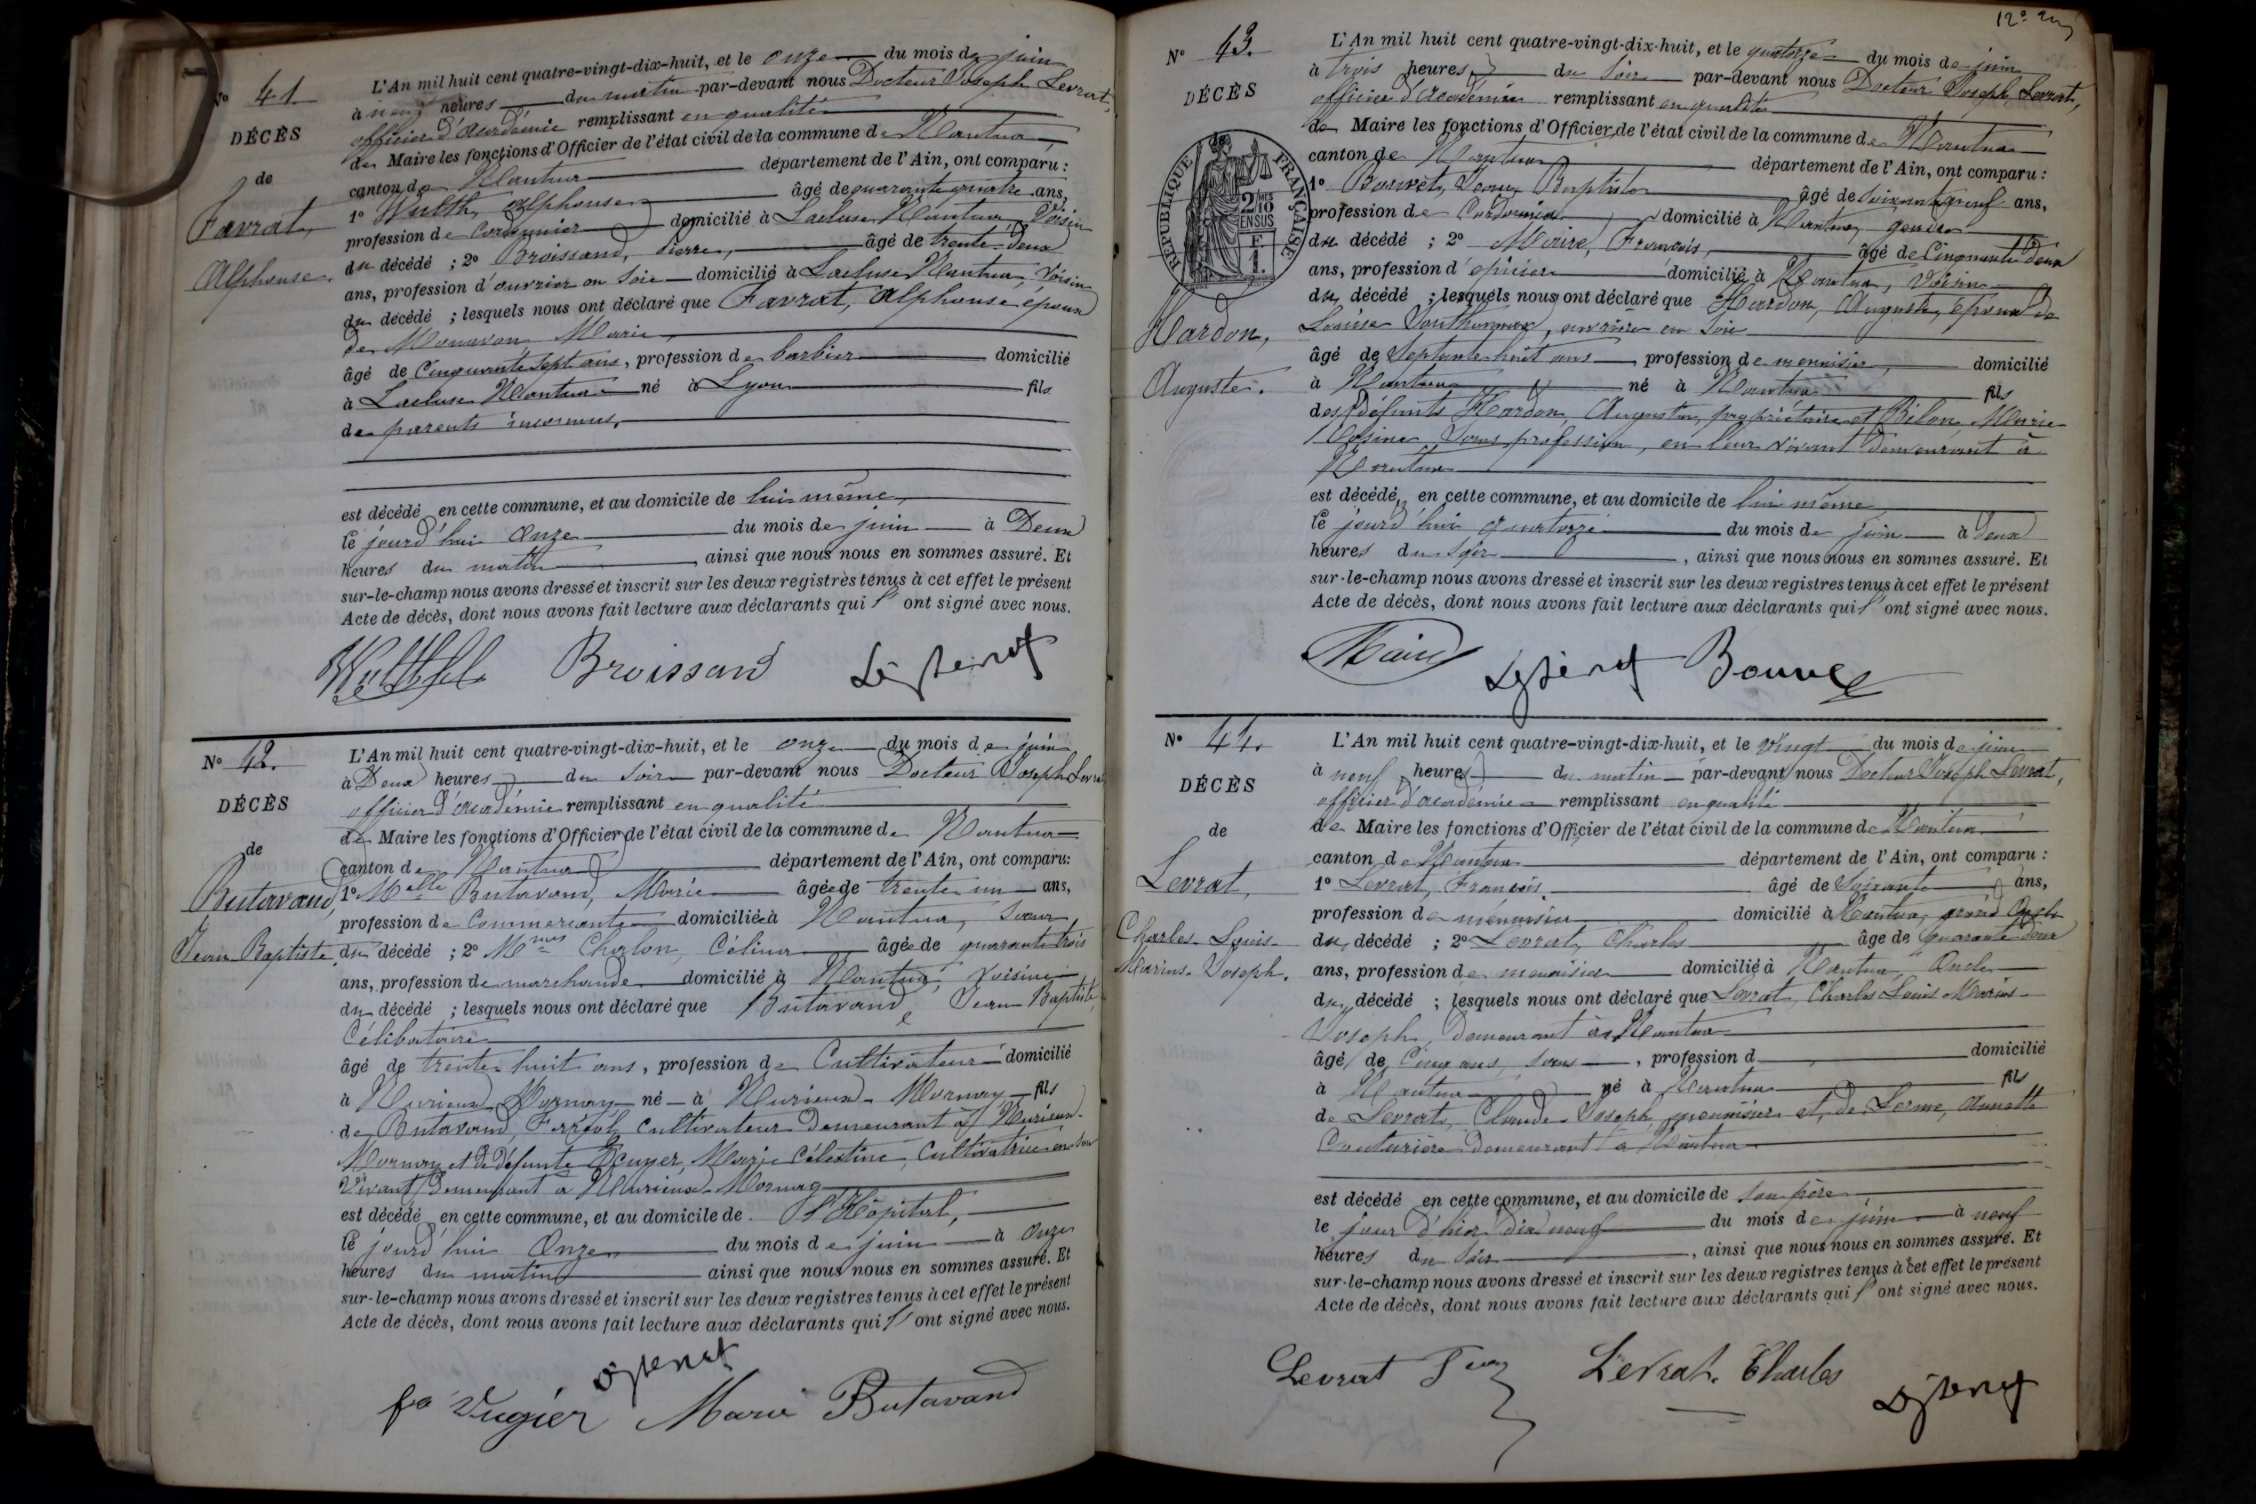 N° 41
DÉCÈS
de
Favrat,
Alphonse.
L'An mil huit cent quatre-vingt-dix-huit, et le onze du mois de juin
à neuf heures du matin par-devant nous Docteur Joseph Levrat,
officier d'académie remplissant en qualité
de Maire les fonctions d'Officier de l'état civil de la commune de Nantua
canton de Nantua département de l'Ain, ont comparu :
1° Alphonse âgé de quarante quatre ans,
profession de cordonnier domicilié à Lacluse Nantua, voisin
du décédé ; 2° Broissand, Pierre, âgé de trente-deux
ans, profession d'ouvrier en soie domicilié à Lacluse Nantua, voisin
du décédé ; lesquels nous ont déclaré que Favrat, Alphonse époux
de Marie
âgé de Cinquante sept ans, profession de barbier domicilié
à Lacluse Nantua né à Lyon fils
de parents inconnus,
est décédé en cette commune, et au domicile de lui même,
le jourd'hui onze du mois de juin à Deux
heures du matin, ainsi que nous nous en sommes assuré. Et
sur-le-champ nous avons dressé et inscrit sur les deux registres tenus à cet effet le présent
Acte de décès, dont nous avons fait lecture aux déclarants qui l'ont signé avec nous.
Broissand
N° 42.
DÉCÈS
de
Butavand,
Jean Baptiste
L'An mil huit cent quatre-vingt-dix-huit, et le onze du mois de juin
à Deux heures du soir par-devant nous Docteur Joseph Levrat
officier d'académie remplissant en qualité
de Maire les fonctions d'Officier de l'état civil de la commune de Nantua
canton de Nantua département de l'Ain, ont comparu:
1° Melle Butavand, Marie âgée de trente un ans,
profession de Commerçante domiciliée à Nantua, sœur
du décédé ; 2° Chalon, Célina âgée de quarante trois
ans, profession de marchande domicilié à Nantua, voisine
du décédé ; lesquels nous ont déclaré que Butavand, Jean Baptiste,
Célibataire
âgé de trente-huit ans, profession de Cultivateur domicilié
à Nurieux-Mornay né à Nurieux-Mornay fils
de Butavand, Ferréol, cultivateur demeurant à Nurieux-
Mornay et de défunte Ecuyer, Marie Célestine, Cultivatrice en son
vivant demeurant à Nurieux-Mornay
est décédé en cette commune, et au domicile de l'Hôpital,
le jourd'hui Onze du mois de juin à onze
heures du matin ainsi que nous nous en sommes assuré. Et
sur-le-champ nous avons dressé et inscrit sur les deux registres tenus à cet effet le présent
Acte de décès, dont nous avons fait lecture aux déclarants qui l'ont signé avec nous.
Marie Butavand
N° 43.
DÉCÈS
RÉPUBLIQUE FRANÇAISE
2/10
EN SUS
Hardon,
Auguste.
L'An mil huit cent quatre-vingt-dix-huit, et le quatorze du mois de juin
à trois heures du soir par-devant nous Docteur Joseph Levrat,
officier d'académie remplissant en qualité
de Maire les fonctions d'Officier de l'état civil de la commune de Nantua
canton de Nantua département de l'Ain, ont comparu :
1° Bouvet, Jean Baptiste âgé de soixante neuf ans,
profession de Cordonnier domicilié à Nantua, gendre
du décédé ; 2° Maire, François, âgé de Cinquante deux
ans, profession d'épicier domicilié à Nantua, voisin
du décédé ; lesquels nous ont déclaré que Hardon, Auguste, époux de
Louise ouvrière en soie
âgé de Septante-huit ans profession de menuisier, domicilié
à Nantua né à Nantua fils
des défunts Hardon, propriétaire et Marie
sans profession, en leur vivant demeurant à
Nantua
est décédé, en cette commune, et au domicile de lui même
le jourd'hui quatorze du mois de juin à deux
heures du soir, ainsi que nous nous en sommes assuré. Et
sur-le-champ nous avons dressé et inscrit sur les deux registres tenus à cet effet le présent
Acte de décès, dont nous avons fait lecture aux déclarants qui l'ont signé avec nous.
Maire
N° 44.
DÉCÈS
de
Levrat,
Charles-Louis-
Marius-Joseph.
L'An mil huit cent quatre-vingt-dix-huit, et le vingt du mois de juin
à neuf heures du matin par-devant nous Docteur Joseph Levrat,
officier d'académie remplissant en qualité
de Maire les fonctions d'Officier de l'état civil de la commune de Nantua
canton de Nantua département de l'Ain, ont comparu :
1° Levrat, François âgé de soixante ans,
profession de menuisier domicilié à Nantua, grand Oncle
du décédé ; 2° Levrat, Charles âgé de quarante deux
ans, profession de menuisier domicilié à Nantua, Oncle
du décédé ; lesquels nous ont déclaré que Levrat, Charles Louis Marius
Joseph, demeurant à Nantua
âgé de Cinq ans, sans, profession d domicilié
à Nantua né à Nantua fils
de Levrat, Claude-Joseph, menuisier et de Lerme, Annette
Couturière demeurant à Nantua
est décédé en cette commune, et au domicile de son père
le jour d'hier dix neuf du mois de juin à neuf
heures du soir, ainsi que nous nous en sommes assuré. Et
sur-le-champ nous avons dressé et inscrit sur les deux registres tenus à cet effet le présent
Acte de décès, dont nous avons fait lecture aux déclarants qui l'ont signé avec nous.
Levrat Levrat. Charles